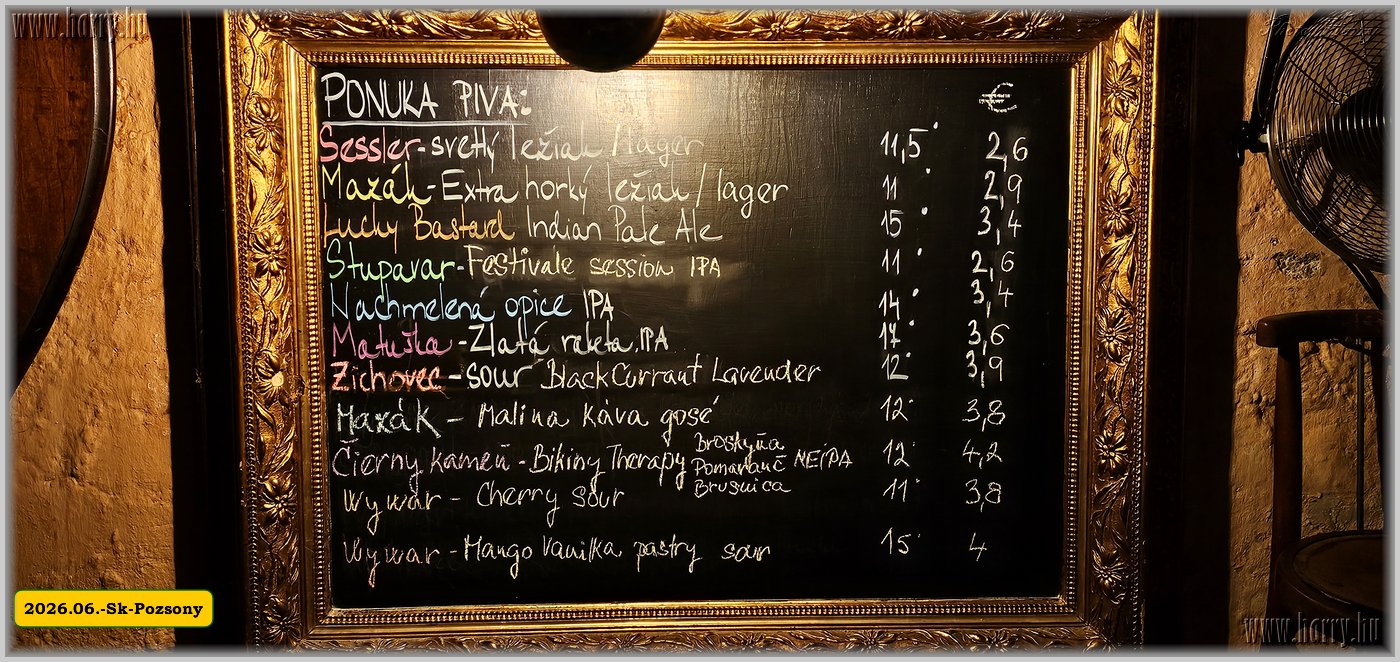 www.harry.hu
PONUKA PIVA: €
Sessler - svetlý ležiak / lager 11,5° 2,6
Mazák - Extra horký ležiak / lager 11° 2,9
Lucky Bastard Indian Pale Ale 15° 3,4
Stupavar - Festivale session IPA 11° 2,6
Nachmelená opice IPA 14° 3,4
Matuška - Zlatá raketa IPA 17° 3,6
Zichovec - sour BlackCurrant Lavender 12° 3,9
Mazák - Malina Káva gosé 12° 3,8
Čierny kameň - Bikiny Therapy Broskyňa Pomaranč Brusnica NEIPA 12° 4,2
Wywar - Cherry sour 11° 3,8
Wywar - Mango Vanilka pastry sour 15° 4
2026.06.-Sk-Pozsony
www.harry.hu